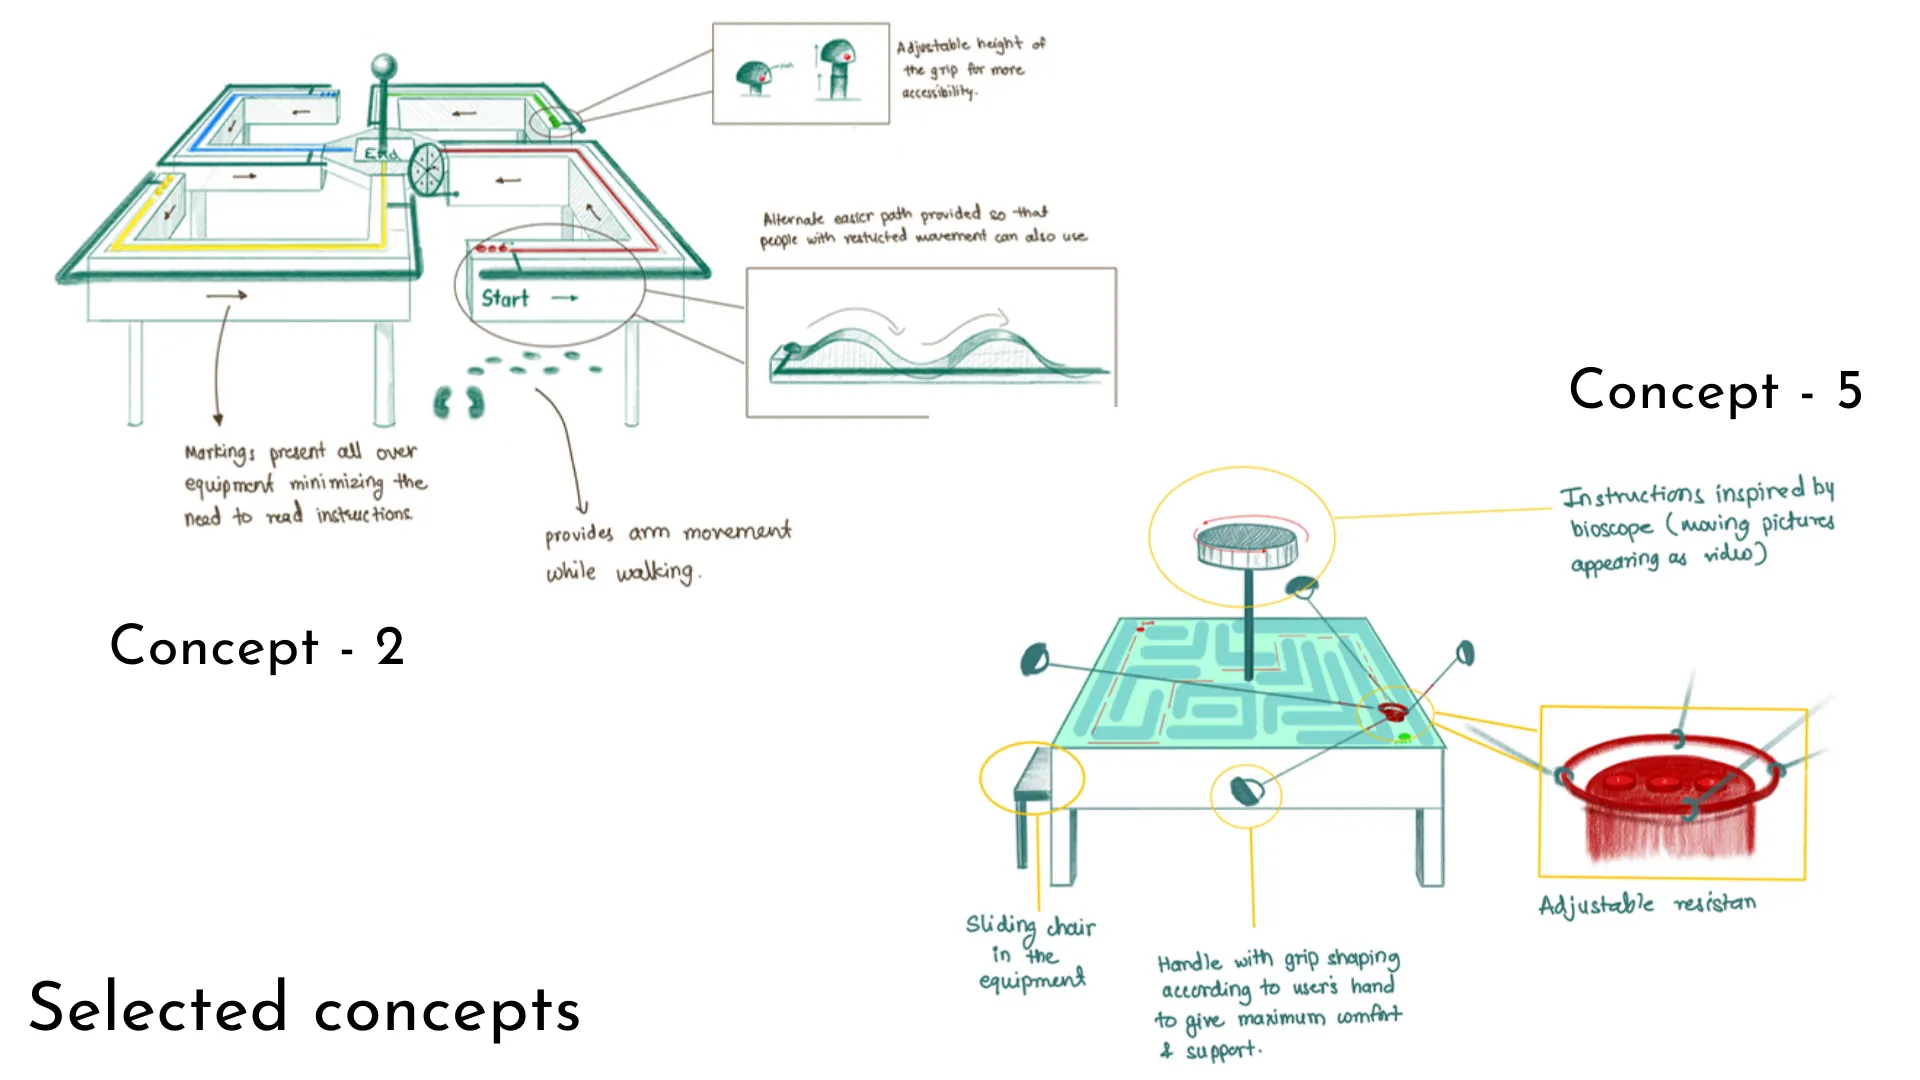 Adjustable height of
the grip for more
accessibility.
push
End
Alternate easier path provided so that
people with restricted movement can also use
Start
Markings present all over
equipment minimizing the
need to read instructions.
provides arm movement
while walking.
Concept - 2
Concept - 5
Instructions inspired by
bioscope (moving pictures
appearing as video)
Adjustable resistan
Sliding chair
in the
equipment
Handle with grip shaping
according to user's hand
to give maximum comfort
& support.
Selected concepts